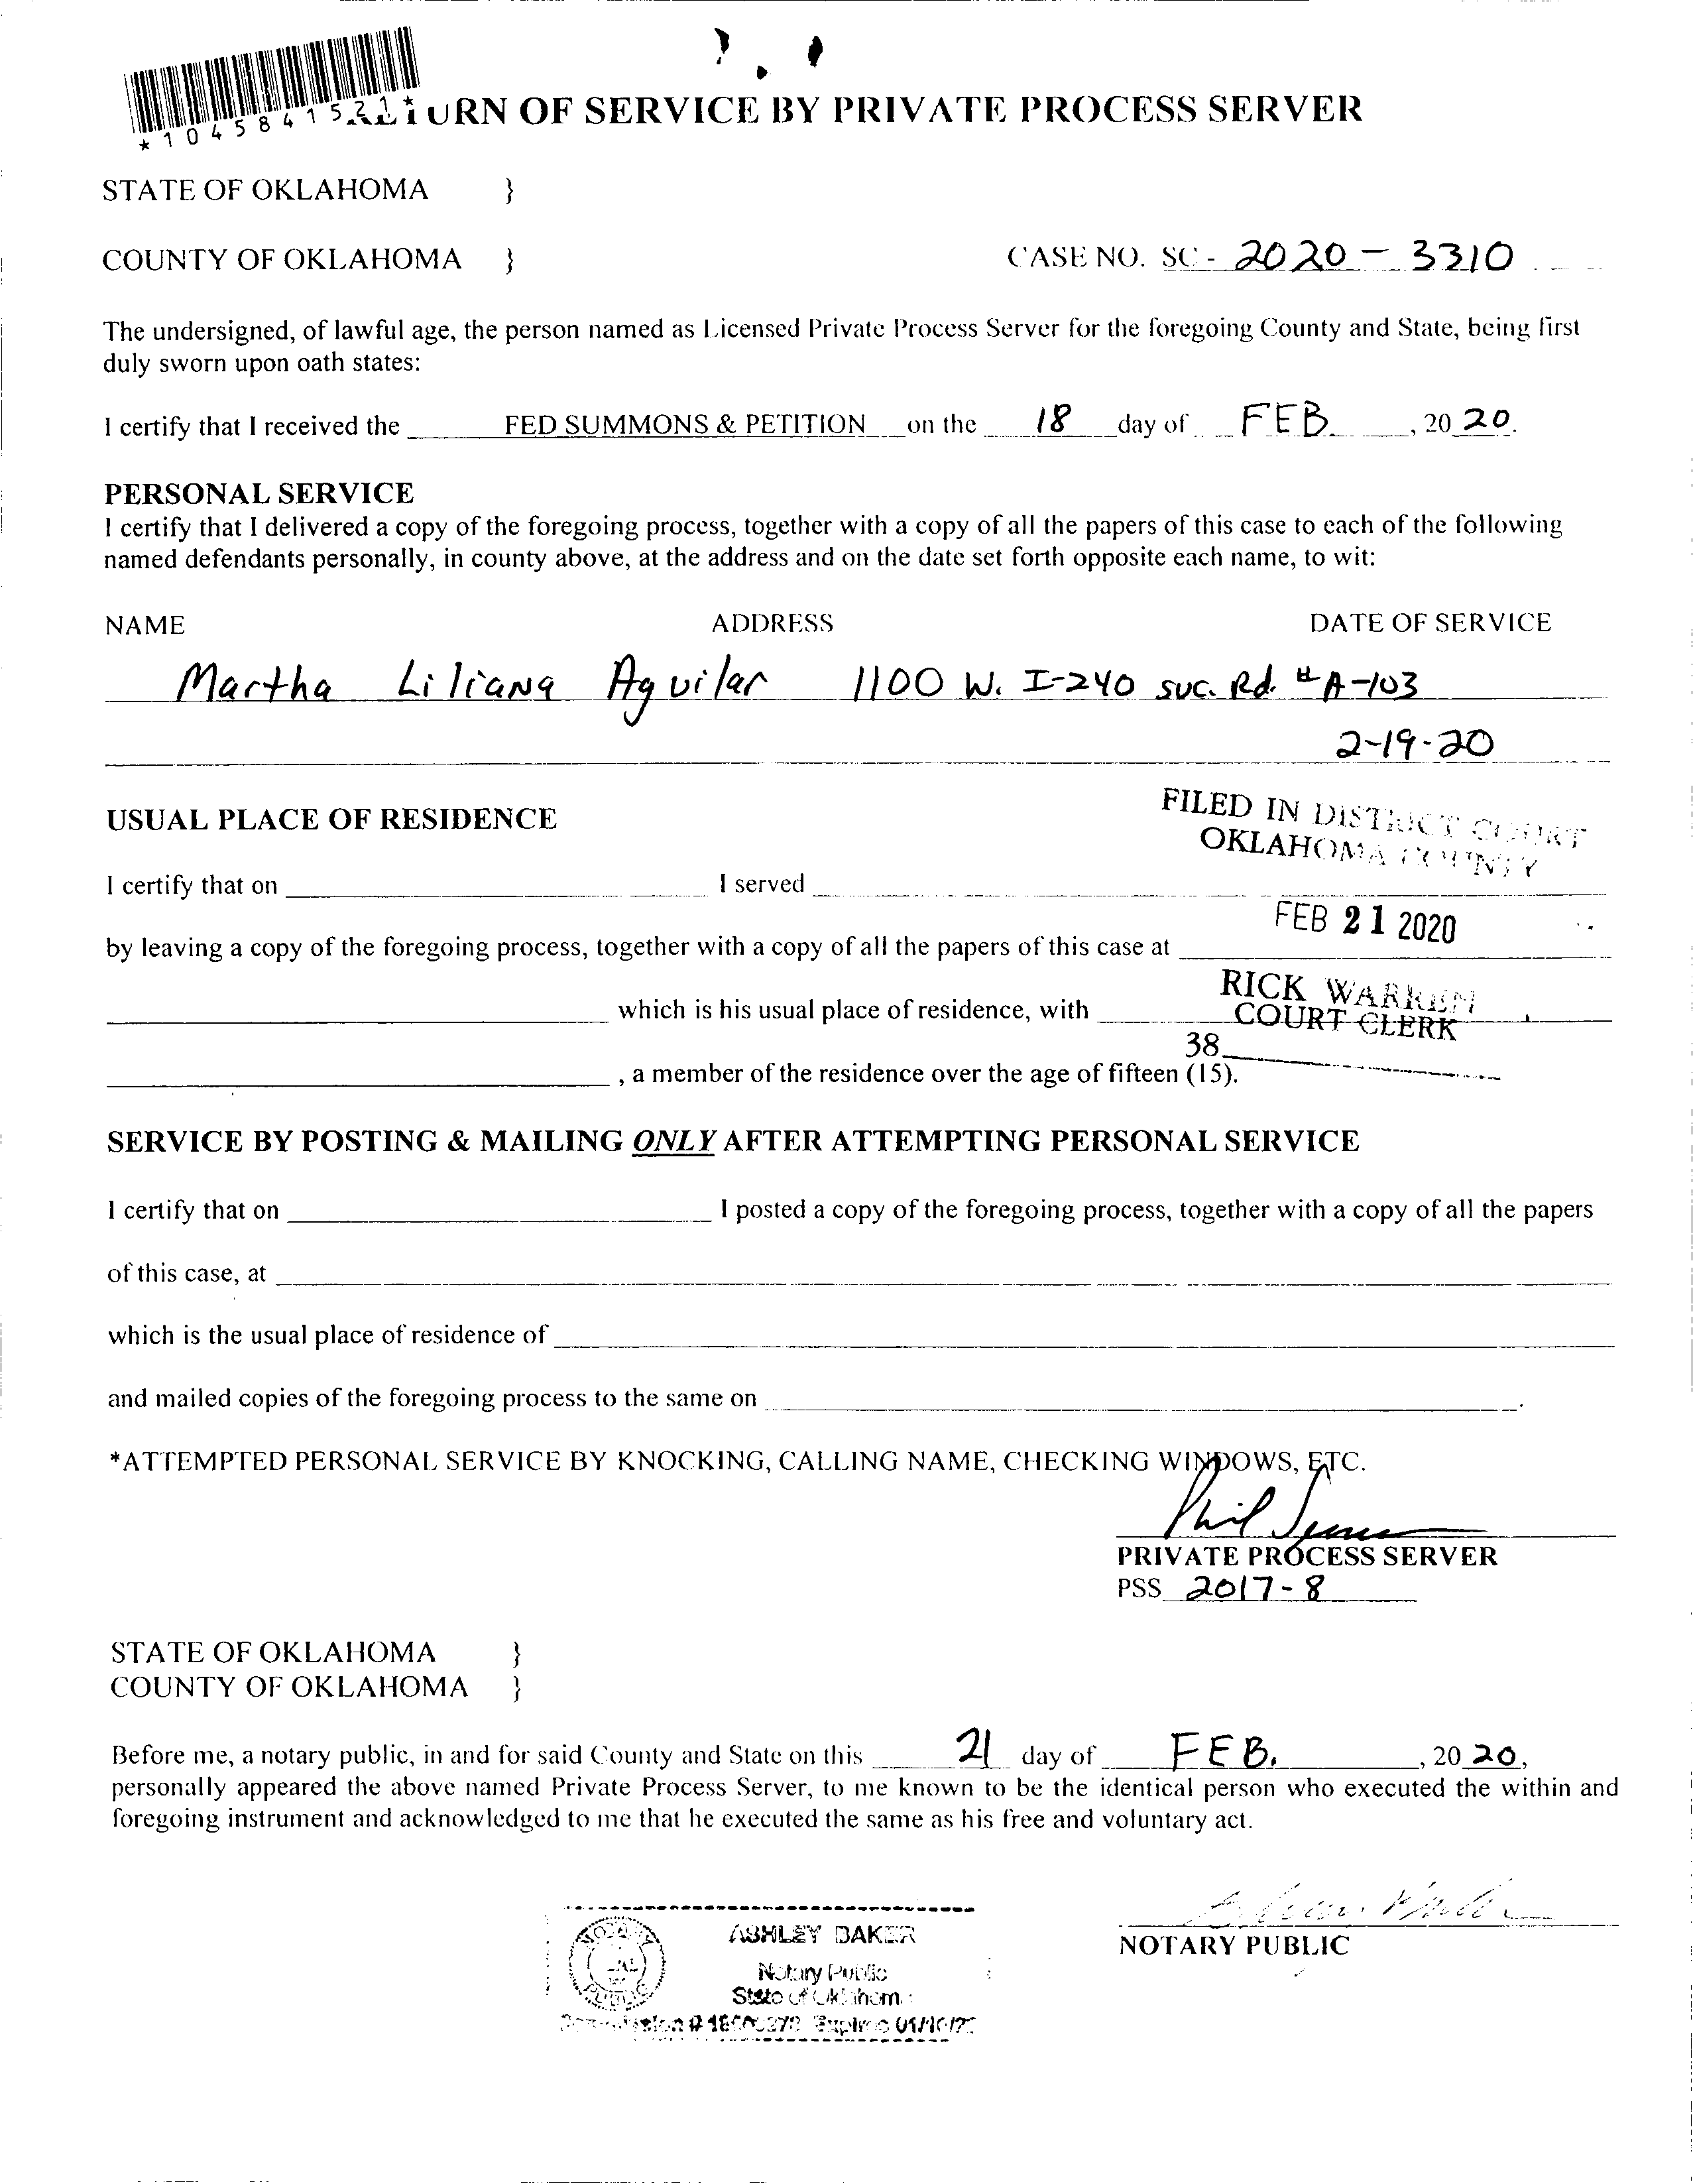 *1045841521*
URN OF SERVICE BY PRIVATE PROCESS SERVER
STATE OF OKLAHOMA }
COUNTY OF OKLAHOMA } CASE NO. SC - 2020 - 3310
The undersigned, of lawful age, the person named as Licensed Private Process Server for the foregoing County and State, being first
duly sworn upon oath states:
I certify that I received the FED SUMMONS & PETITION on the 18 day of FEB , 20 20.
PERSONAL SERVICE
I certify that I delivered a copy of the foregoing process, together with a copy of all the papers of this case to each of the following
named defendants personally, in county above, at the address and on the date set forth opposite each name, to wit:
NAME ADDRESS DATE OF SERVICE
Martha Liliana Aguilar 1100 W. I-240 svc. Rd. #A-103
2-19-20
USUAL PLACE OF RESIDENCE
FILED IN DISTRICT COURT
OKLAHOMA COUNTY
I certify that on I served
FEB 21 2020
by leaving a copy of the foregoing process, together with a copy of all the papers of this case at
RICK WARREN
which is his usual place of residence, with
COURT CLERK
38
, a member of the residence over the age of fifteen (15).
SERVICE BY POSTING & MAILING ONLY AFTER ATTEMPTING PERSONAL SERVICE
I certify that on I posted a copy of the foregoing process, together with a copy of all the papers
of this case, at
which is the usual place of residence of
and mailed copies of the foregoing process to the same on .
*ATTEMPTED PERSONAL SERVICE BY KNOCKING, CALLING NAME, CHECKING WINDOWS, ETC.
Phil
PRIVATE PROCESS SERVER
PSS 2017-8
STATE OF OKLAHOMA }
COUNTY OF OKLAHOMA }
Before me, a notary public, in and for said County and State on this 21 day of FEB. , 20 20,
personally appeared the above named Private Process Server, to me known to be the identical person who executed the within and
foregoing instrument and acknowledged to me that he executed the same as his free and voluntary act.
NOTARY PUBLIC
ASHLEY BAKER
Notary Public
State of Oklahoma